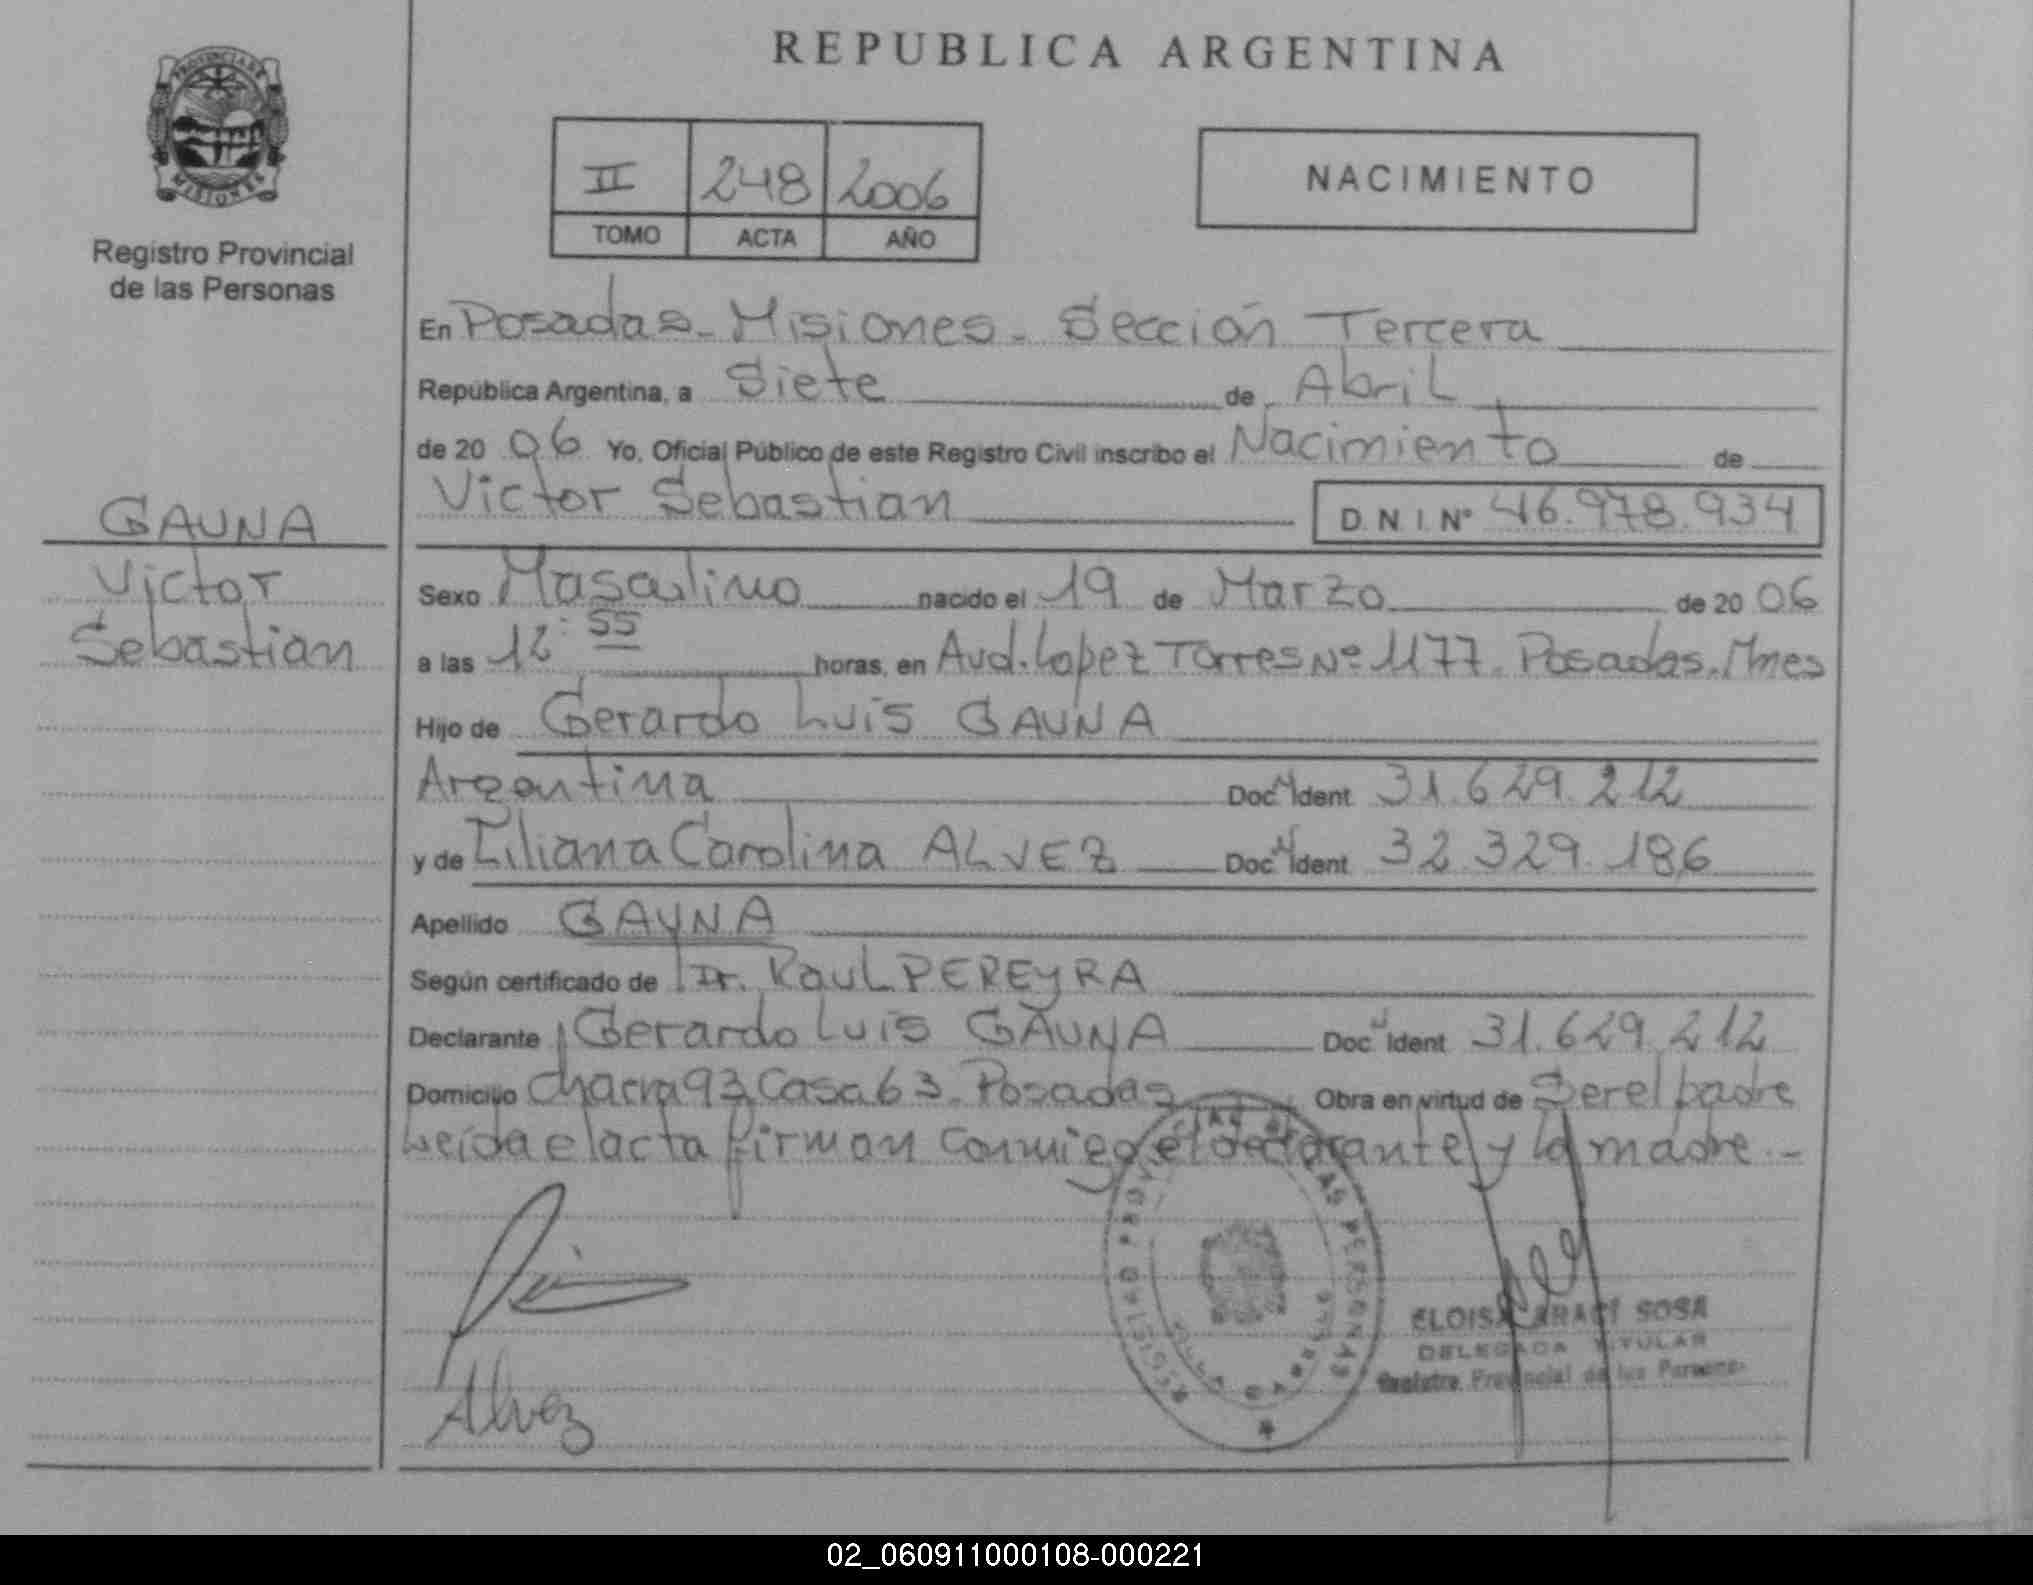 REPUBLICA ARGENTINA
PROVINCIA DE
MISIONES
Registro Provincial
de las Personas
II 248 2006
TOMO ACTA AÑO
NACIMIENTO
En Posadas - Misiones - Sección Tercera
República Argentina, a Siete de Abril
de 20 06 Yo, Oficial Público de este Registro Civil inscribo el Nacimiento de
Victor Sebastian D.N.I. Nº 46.978.934
GAUNA
Victor
Sebastian
Sexo Masculino nacido el 19 de Marzo de 20 06
a las 12:55 horas, en Avd. Lopez Torres Nº 1177. Posadas. Mnes
Hijo de Gerardo Luis GAUNA
Argentina Doc. Ident 31.629.212
y de Liliana Carolina ALVEZ Doc. Ident 32.329.186
Apellido GAUNA
Según certificado de Dr. Raul PEREYRA
Declarante Gerardo Luis GAUNA Doc. Ident 31.629.212
Domicilio Chacra 93 Casa 63 - Posadas Obra en virtud de Ser el padre
Leída el acta firman conmigo el declarante y la madre. -
REGISTRO PROVINCIAL DE LAS PERSONAS
ELOISA ARACÍ SOSA
DELEGADA TITULAR
Registro Provincial de las Personas
Alvez
02_060911000108-000221